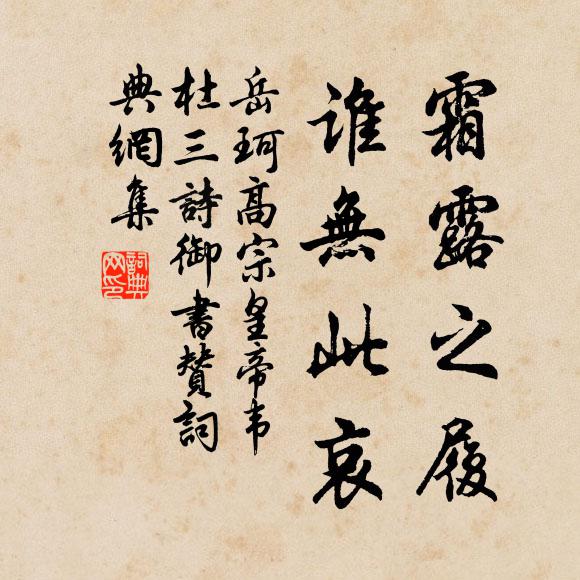 霜露之履
誰無此哀
岳珂高宗皇帝韦
杜三詩御書贊詞
典網集
詞典
网印